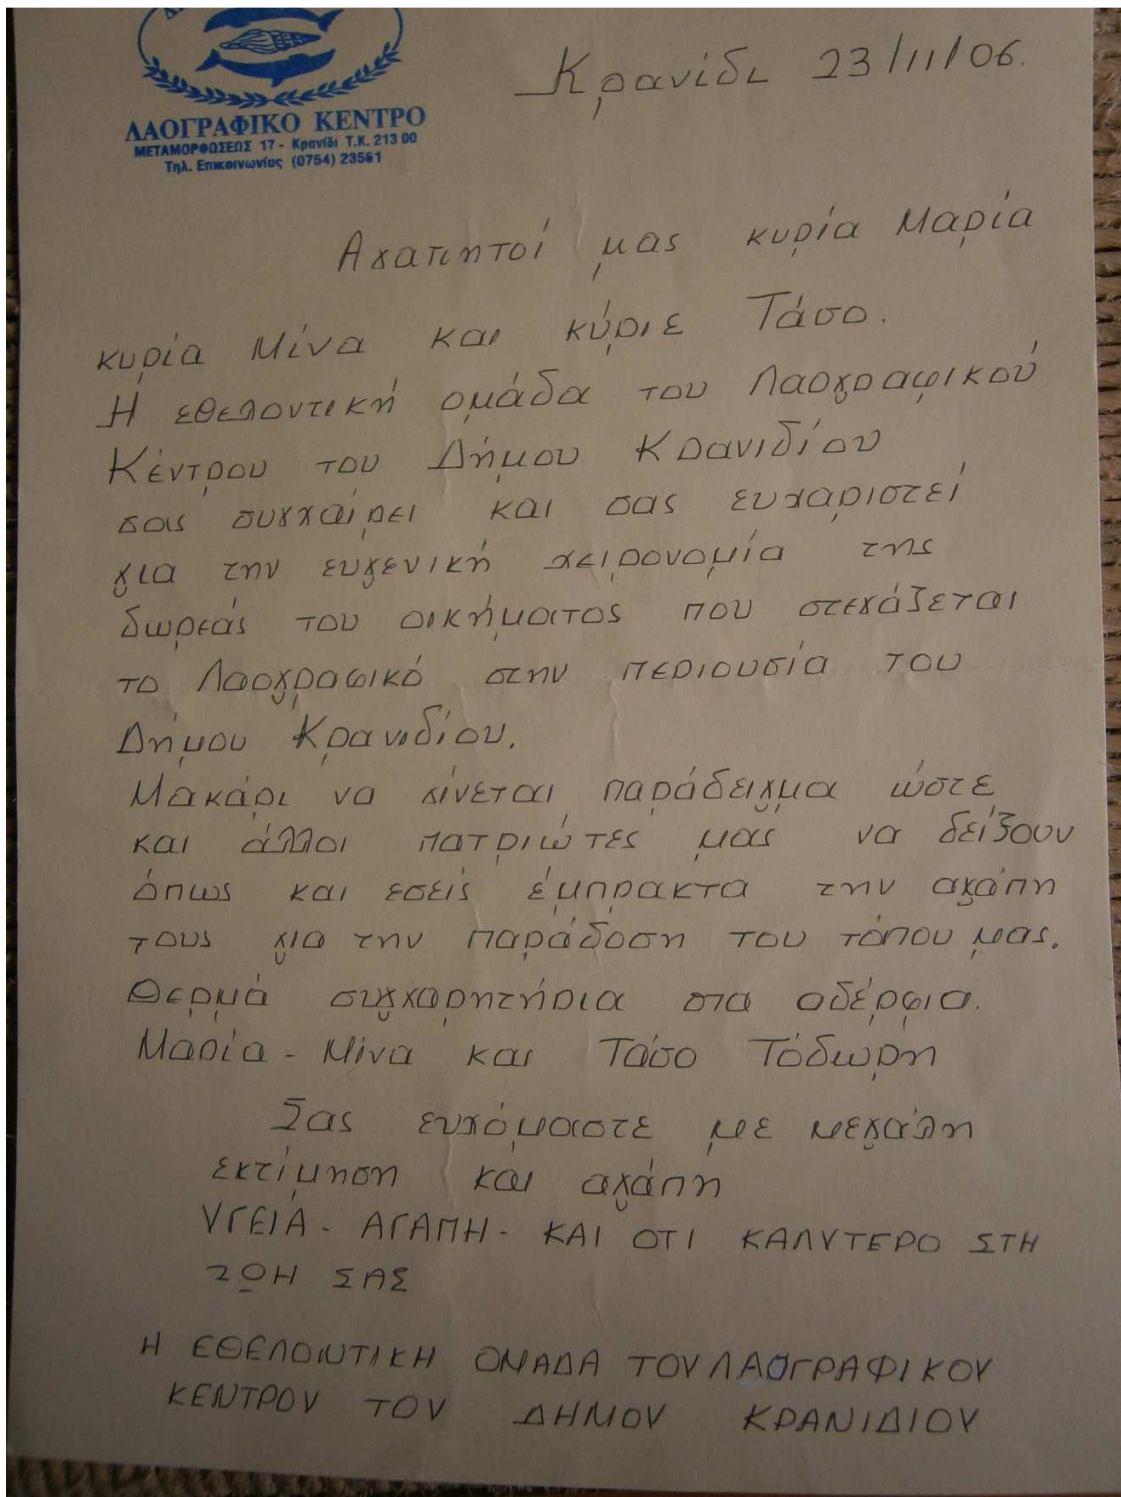 ΛΑΟΓΡΑΦΙΚΟ ΚΕΝΤΡΟ
ΜΕΤΑΜΟΡΦΩΣΕΩΣ 17 - Κρανίδι Τ.Κ. 213 00
Τηλ. Επικοινωνίας (0754) 23561
Κρανίδι 23/11/06.
Αγαπητοί μας κυρία Μαρία
κυρία Μίνα και κύριε Τάσο.
Η εθελοντική ομάδα του Λαογραφικού
Κέντρου του Δήμου Κρανιδίου
σας συγχαίρει και σας ευχαριστεί
για την ευγενική χειρονομία της
δωρεάς του οικήματος που στεγάζεται
το Λαογραφικό στην περιουσία του
Δήμου Κρανιδίου.
Μακάρι να γίνεται παράδειγμα ώστε
και άλλοι πατριώτες μας να δείξουν
όπως και εσείς έμπρακτα την αγάπη
τους για την παράδοση του τόπου μας.
Θερμά συγχαρητήρια στα αδέρφια.
Μαρία - Μίνα και Τάσο Τόδωρη
Σας ευχόμαστε με μεγάλη
εκτίμηση και αγάπη
ΥΓΕΙΑ - ΑΓΑΠΗ - ΚΑΙ ΟΤΙ ΚΑΛΥΤΕΡΟ ΣΤΗ
ΖΩΗ ΣΑΣ
Η ΕΘΕΛΟΝΤΙΚΗ ΟΜΑΔΑ ΤΟΥ ΛΑΟΓΡΑΦΙΚΟΥ
ΚΕΝΤΡΟΥ ΤΟΥ ΔΗΜΟΥ ΚΡΑΝΙΔΙΟΥ